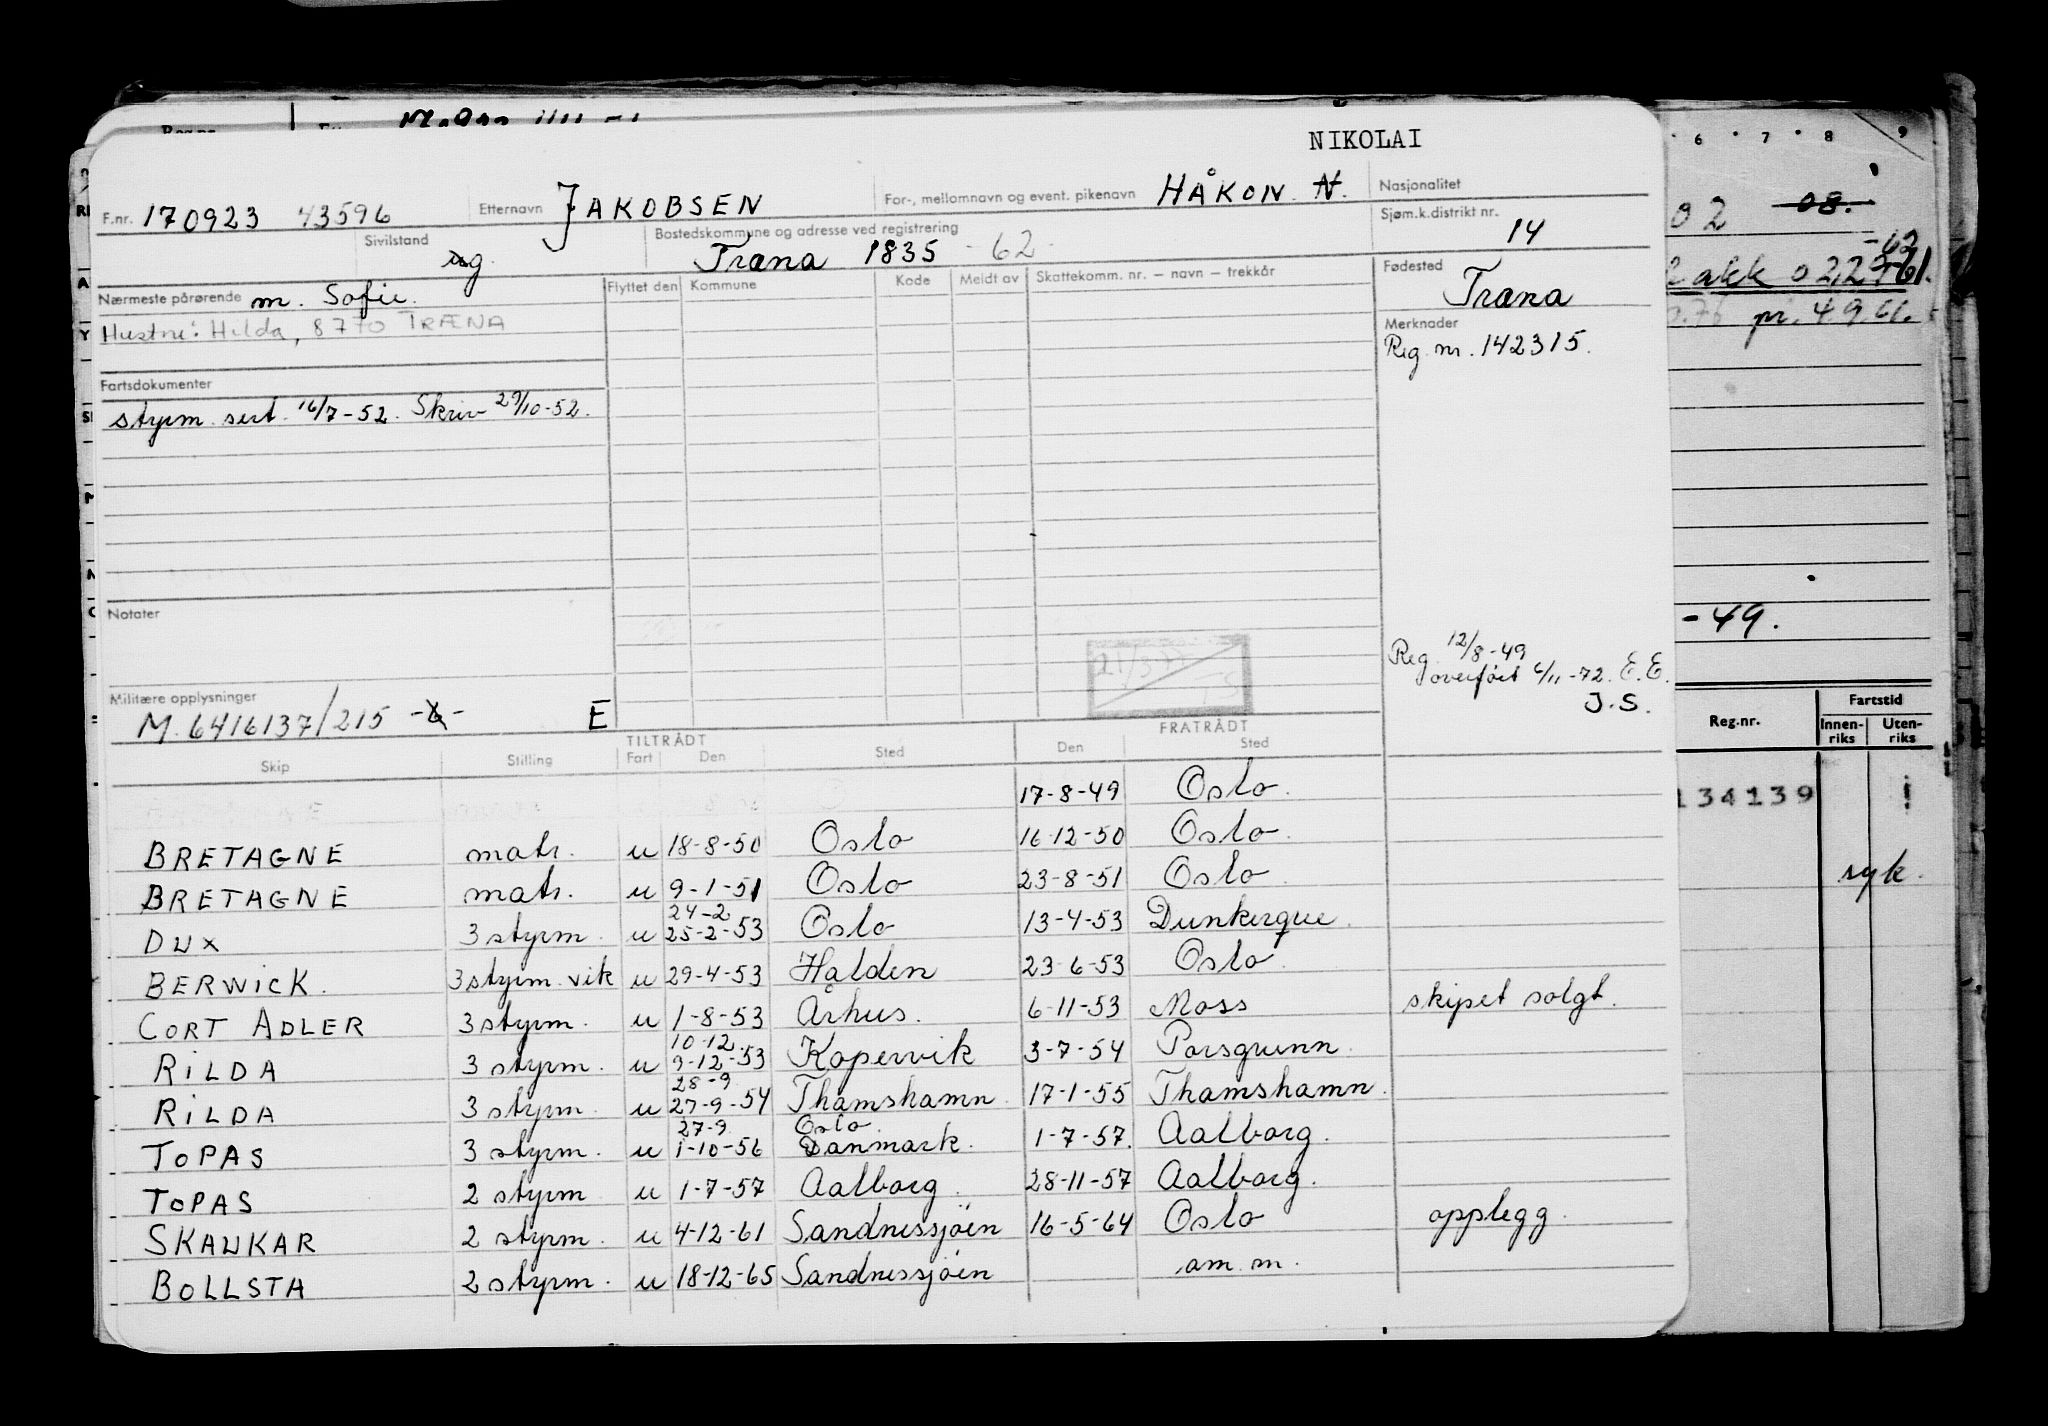 NIKOLAI
F.nr. 170923 43596 Etternavn JAKOBSEN For-, mellomnavn og event. pikenavn HÅKON N. Nasjonalitet
Sivilstand g. Bostedskommune og adresse ved registrering Træna 1835 - 62 - Sjøm.k.distrikt nr. 14
Nærmeste pårørende m. Sofie. Flyttet den Kommune Kode Meldt av Skattekomm. nr. – navn – trekkår Fødested Træna
Hustru: Hilda, 8770 TRÆNA
Merknader
Reg. nr. 142315.
Fartsdokumenter
styrm. sert. 16/7-52. Skriv 29/10-52.
Notater
Reg. 12/8-49
overført 6/11-72. E.E.
J.S.
Militære opplysninger
M. 6416137/215 E
TILTRÅDT FRATRÅDT
Skip Stilling Fart Den Sted Den Sted
17-8-49 Oslo.
BRETAGNE matr. u 18-8-50 Oslo 16-12-50 Oslo.
BRETAGNE matr. u 9-1-51 Oslo 23-8-51 Oslo.
24-2
DUX 3 styrm. u 25-2-53 Oslo 13-4-53 Dunkerque.
BERWICK. 3 styrm. vik u 29-4-53 Halden 23-6-53 Oslo
CORT ADLER 3 styrm. u 1-8-53 Århus. 6-11-53 Moss skipet solgt.
10-12.
RILDA 3 styrm. u 9-12-53 Kopervik 3-7-54 Porsgrunn.
28-9
RILDA 3 styrm. u 27-9-54 Thamshamn. 17-1-55 Thamshamn.
27-9. Oslo.
TOPAS 3 styrm. u 1-10-56 Danmark. 1-7-57. Aalborg.
TOPAS 2 styrm u 1-7-57 Aalborg. 28-11-57 Aalborg.
SKAUKAR 2 styrm. u 4-12-61 Sandnessjøen 16-5-64 Oslo opplegg.
BOLLSTA 2 styrm. u 18-12-65 Sandnessjøen am. m.
6 7 8 9
02 08.
pr. 4.9.61.
-49.
Reg.nr. Fartstid
Innen-riks Uten-riks
134139
syk.